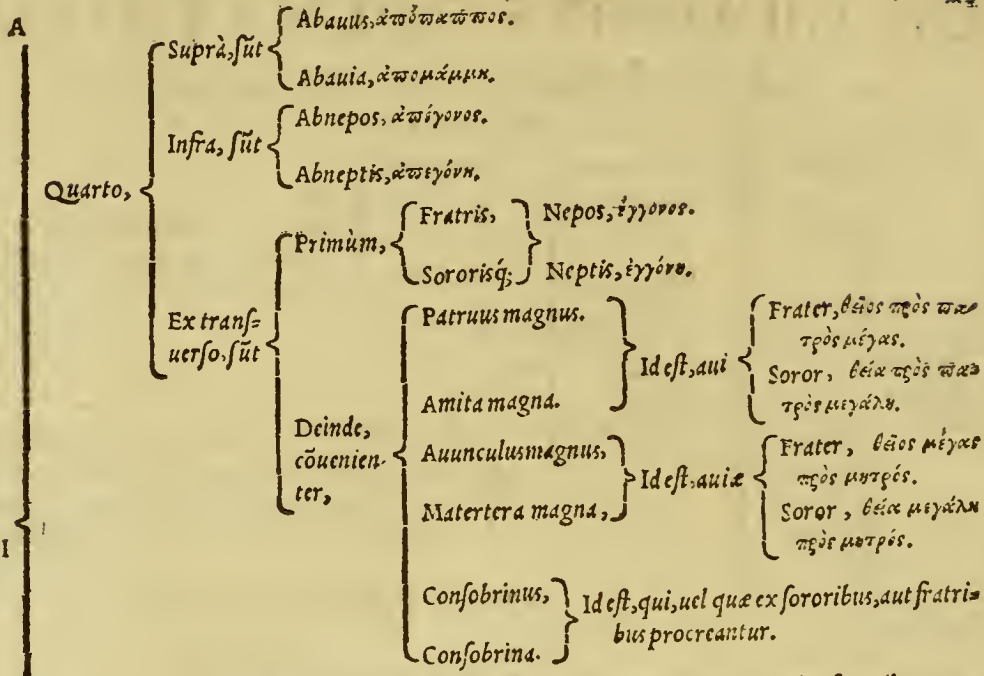 A
Quarto,
Suprà, sũt
Abauus, ἀπόπαππος.
Abauia, ἀπομάμμη.
Infra, sũt
Abnepos, ἀπόγονος.
Abneptis, ἀπεγόνη.
Ex transuerso, sũt
Primùm,
Fratris,
Sororisq́;
Nepos, ἔγγονος.
Neptis, ἐγγόνη.
Deinde,
cõuenien-
ter,
Patruus magnus.
Amita magna.
Id est, aui
Frater, θεῖος πρὸς πα
τρὸς μέγας.
Soror, θεία πρὸς πα
τρὸς μεγάλη.
Auunculus magnus,
Matertera magna,
Id est, auiæ
Frater, θεῖος μέγας
πρὸς μητρός.
Soror, θεία μεγάλη
πρὸς μητρός.
I
Consobrinus,
Consobrina.
Id est, qui, uel quæ ex sororibus, aut fratri=
bus procreantur.